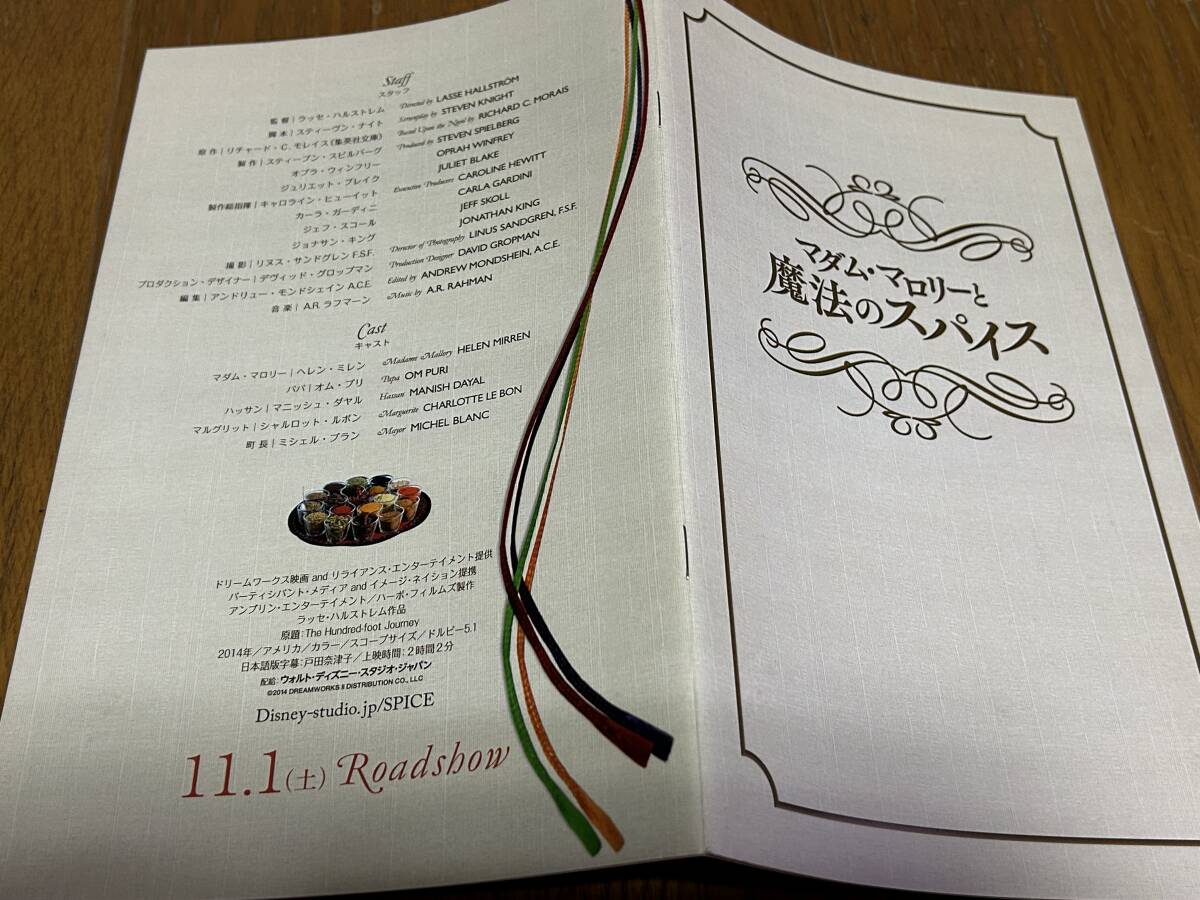 Staff
スタッフ
監督|ラッセ・ハルストレム Directed by LASSE HALLSTRÖM
脚本|スティーヴン・ナイト Screenplay by STEVEN KNIGHT
原作|リチャード・C.モレイス(集英社文庫) Based Upon the Novel by RICHARD C. MORAIS
製作|スティーブン・スピルバーグ Produced by STEVEN SPIELBERG
オプラ・ウィンフリー OPRAH WINFREY
ジュリエット・ブレイク JULIET BLAKE
製作総指揮|キャロライン・ヒューイット Executive Producers CAROLINE HEWITT
カーラ・ガーディニ CARLA GARDINI
ジェフ・スコール JEFF SKOLL
ジョナサン・キング JONATHAN KING
撮影|リヌス・サンドグレン F.S.F. Director of Photography LINUS SANDGREN, F.S.F.
プロダクション・デザイナー|デヴィッド・グロップマン Production Designer DAVID GROPMAN
編集|アンドリュー・モンドシェイン A.C.E. Edited by ANDREW MONDSHEIN, A.C.E.
音楽|A.R.ラフマーン Music by A.R. RAHMAN
Cast
キャスト
マダム・マロリー|ヘレン・ミレン Madame Mallory HELEN MIRREN
パパ|オム・プリ Papa OM PURI
ハッサン|マニッシュ・ダヤル Hassan MANISH DAYAL
マルグリット|シャルロット・ルボン Marguerite CHARLOTTE LE BON
町長|ミシェル・ブラン Mayor MICHEL BLANC
ドリームワークス映画 and リライアンス・エンターテイメント提供
パーティシパント・メディア and イメージ・ネイション提携
アンブリン・エンターテイメント/ハーポ・フィルムズ製作
ラッセ・ハルストレム作品
原題:The Hundred-foot Journey
2014年/アメリカ/カラー/スコープサイズ/ドルビー5.1
日本語版字幕:戸田奈津子/上映時間:2時間2分
配給:ウォルト・ディズニー・スタジオ・ジャパン
©2014 DREAMWORKS II DISTRIBUTION CO., LLC
Disney-studio.jp/SPICE
11.1(土) Roadshow
マダム・マロリーと
魔法のスパイス